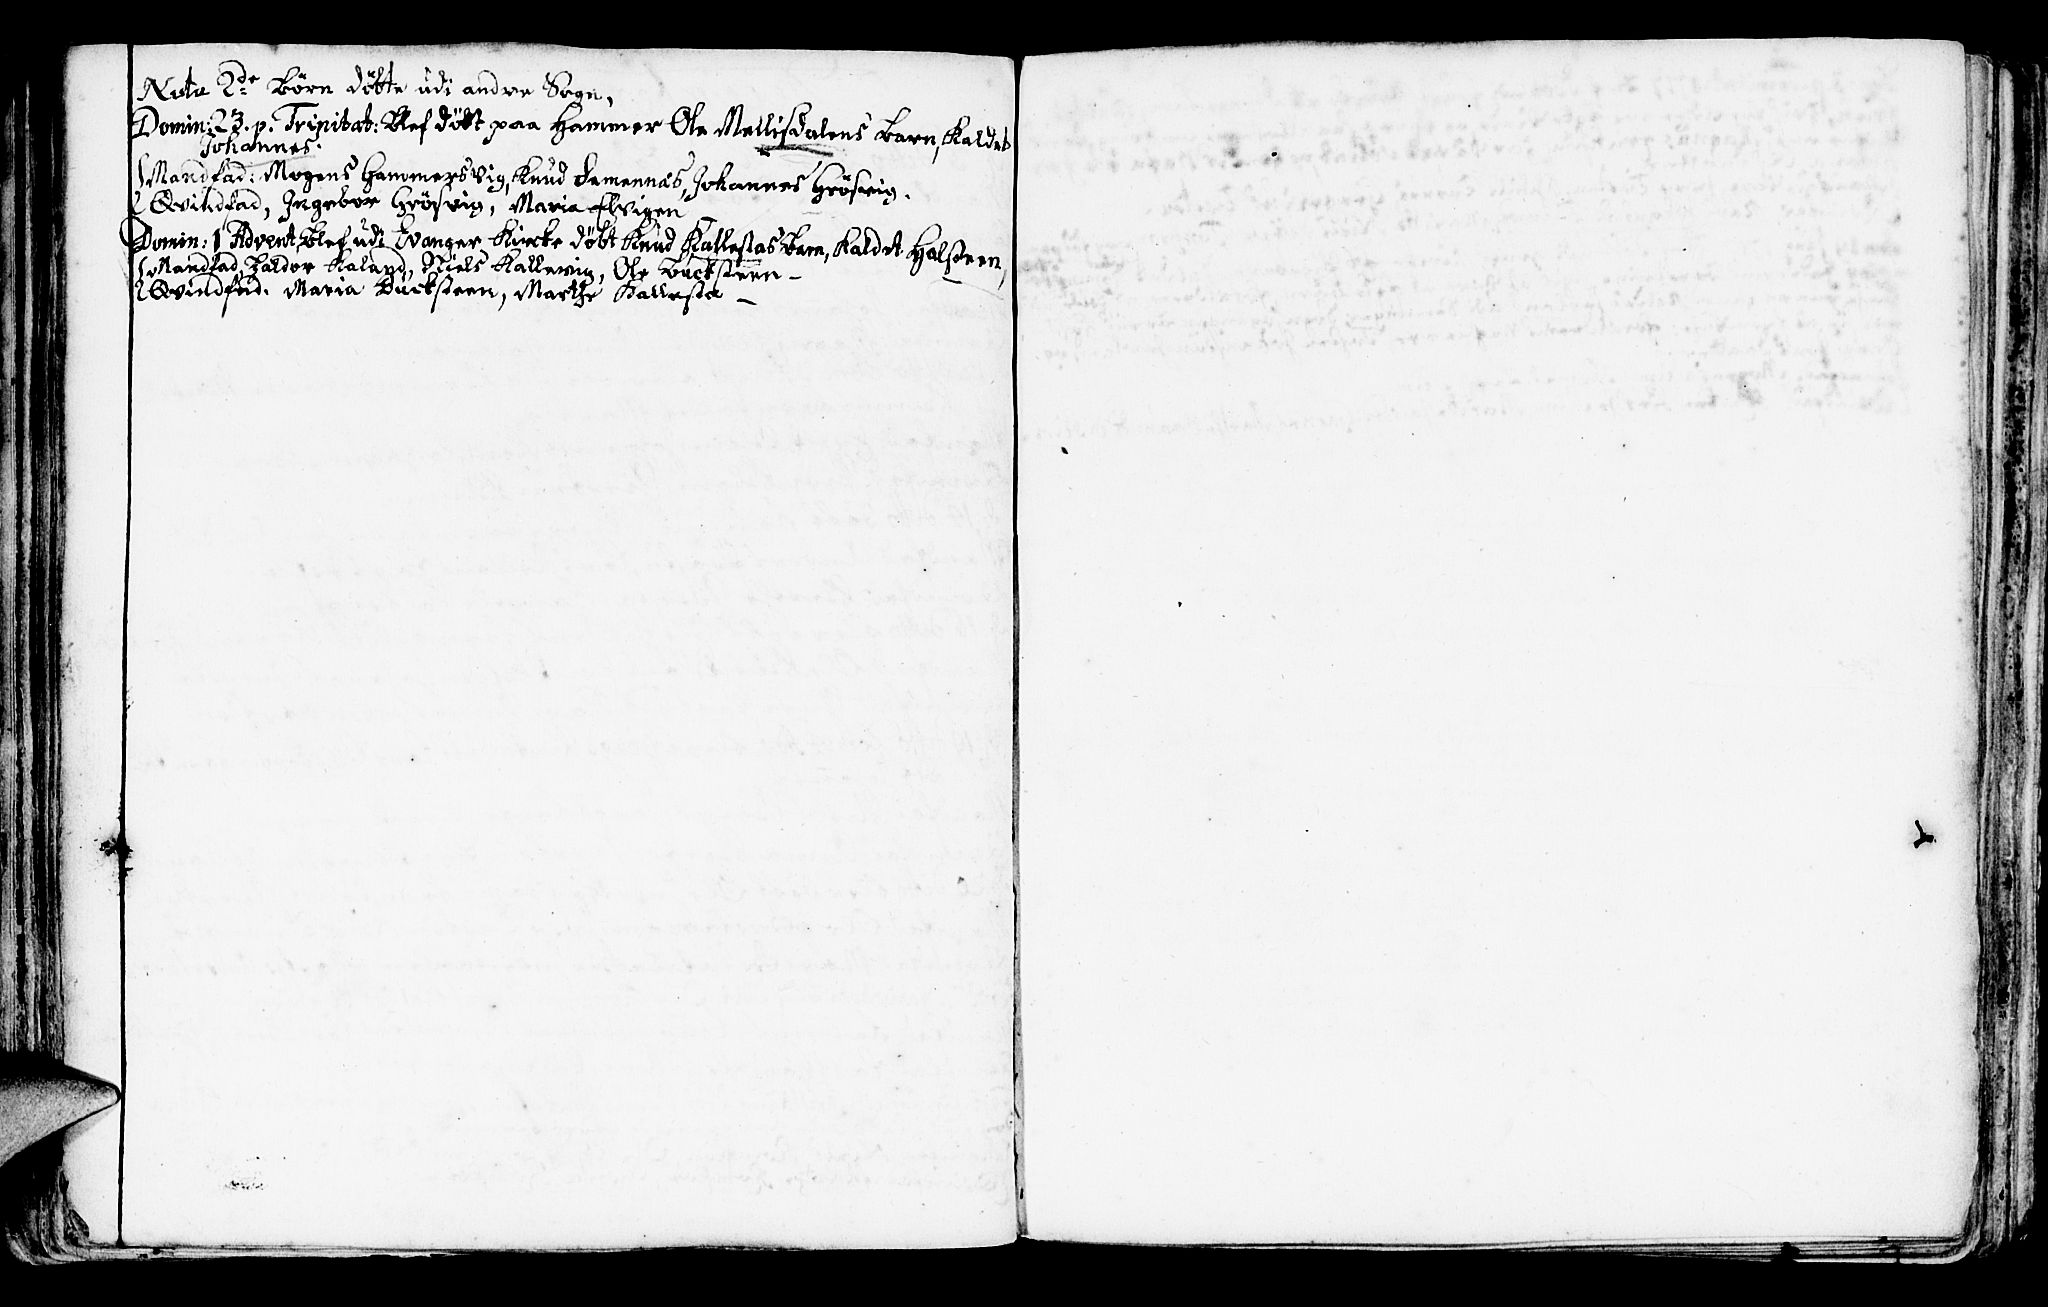 Nota 2de Børn døbte udi andre Sogn,
Domin: 23. p. Trinitat: Blef døbt paa Hammer Ole Mellisdalens Barn, Kaldet
Johannes.
Mandfad: Mogens Hammersvig, Knud Jamennæs, Johannes Grøsvig.
Qvindfad, Ingebor Grøsvig, Maria Elvigen
Domin: 1 Advent, Blef udi Evanger Kircke døbt Knud Kallestas Barn, Kaldet Halsteen,
Mandfad, Haldor Kaland, Niels Kallevig, Ole Bucksteen -
Qvindfad. Maria Bucksteen, Marthe Kallesta -